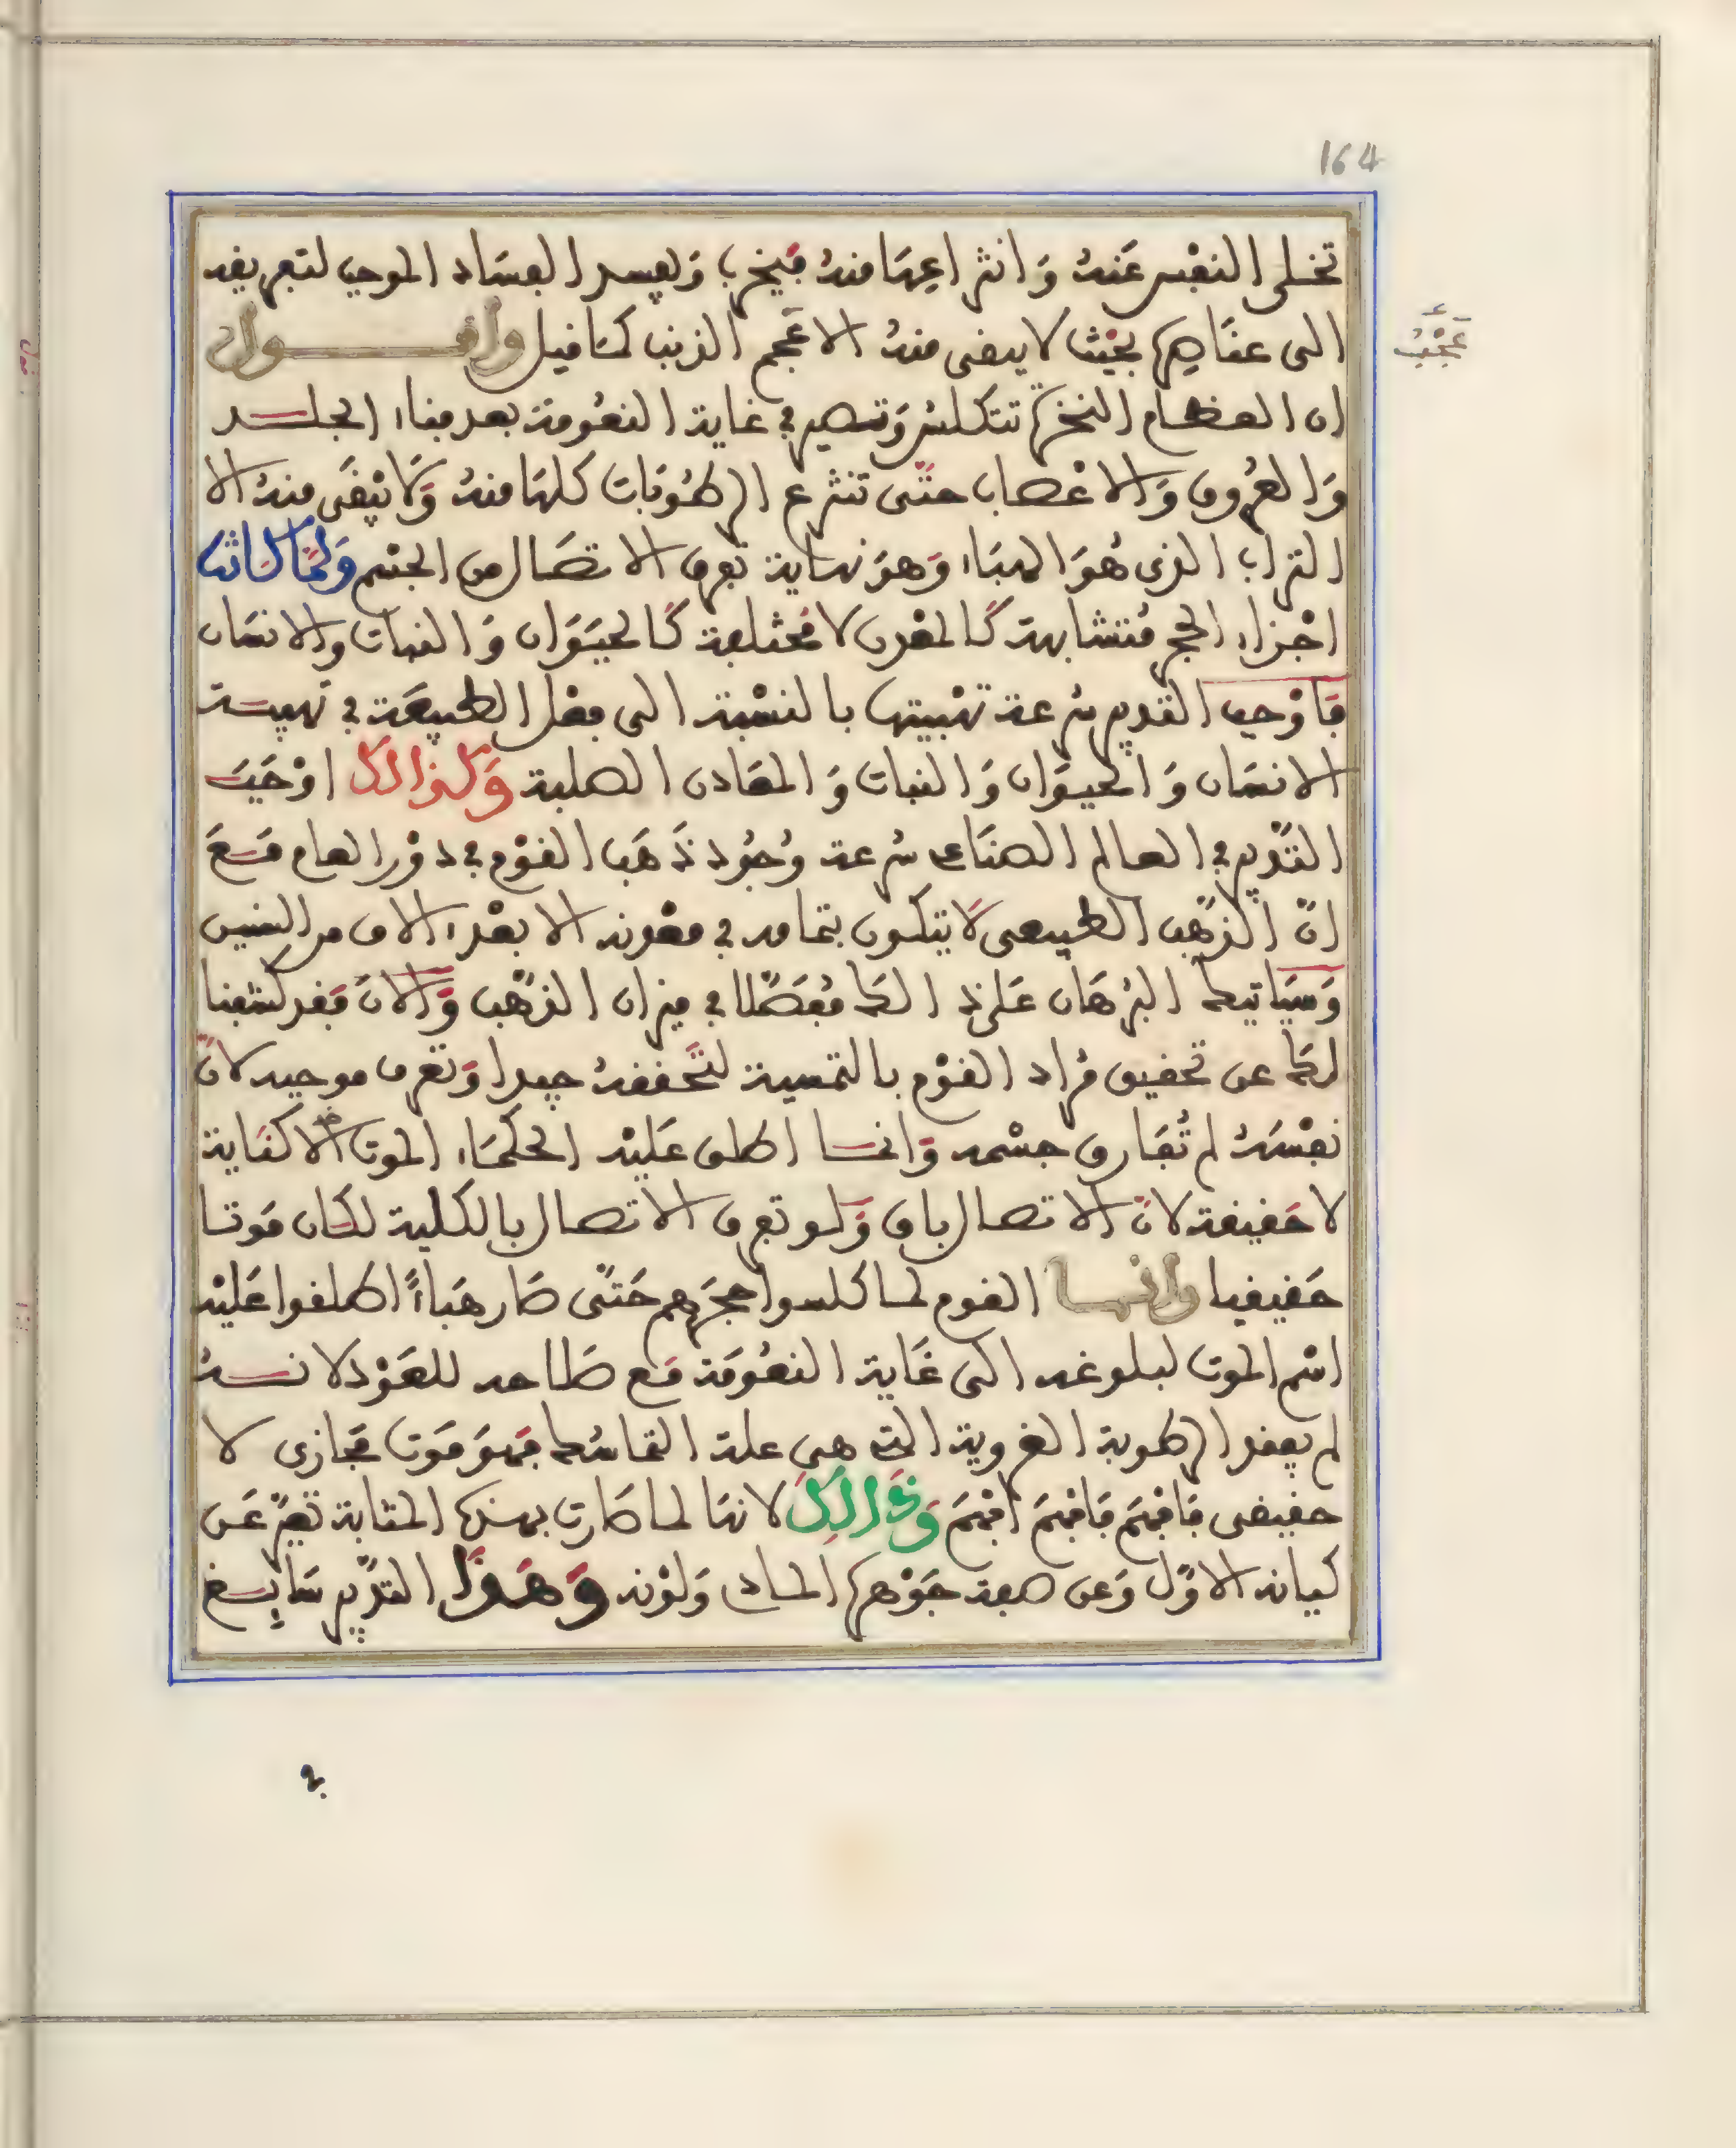 164
تخلى النفس عنه وانتزاعها منه فيخرب ويفسد الفساد الموجب لتفريقه
الى عناصره بحيث لا يبقى منه الا عجم الذنب كما قيل واقول
عجب
ان العظام النخرة تتكلس وتصير في غاية النعومة بعد فناء الجلد
والعروق والاعصاب حتى تنتزع الرطوبات كلها منه ولا يبقى منه الا
التراب الذي هو الهباء وهو نهاية تفرق الاتصال من الجسم ولما كانت
اجزاء الحجر متشابهة كالمعدن لا مختلفة كالحيوان والنبات والانسان
فاوجب التدبير سرعة تهبيتها بالنسبة الى فعل الطبيعة في تهبية
الانسان والحيوان والنبات والمعادن الصلبة وكذالك اوجب
التدبير في العالم الصناعى سرعة وجود ذهب القوم في دور العام مع
ان الذهب الطبيعى لا يتكون بتمامه في معدنه الا بعد الاف من السنين
وسياتيك البرهان على ذالك مفصلا في ميزان الذهب والان فقد كشفنا
لك عن تحقيق مراد القوم بالتسمية لتحققه جيدا وتعرف موجبه لان
نفسه لم تفارق جسمه وانما اطلق عليه الحكماء الموت الا كناية
لا حقيقة لان الاتصال باق ولو تفرق الاتصال بالكلية لكان موتا
حقيقيا وانما القوم لما كلسوا حجرهم حتى صار هباءً اطلقوا عليه
اسم الموت لبلوغه الى غاية النعومة مع صلاحه للعود لانه
لم يفقد الرطوبة الغروية التى هى علة التماسك فهو موت مجازى لا
حقيقى فافهم فافهم افهم وذالك لانها لما صارت بهذه المثابة تغير عن
كيانه الاول وعن صفة جوهره المادى ولونه وهذا التدبير سايغ
في